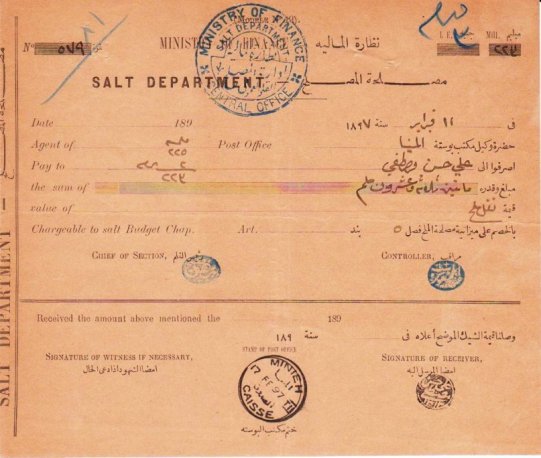 MINISTRY OF FINANCE
نظارة الماليه
I. E. جنيه Mill. مليم
٢٢٣
No ٥٧٩ نمرة
SALT DEPARTMENT
مصلحة الملح
MINISTRY OF FINANCE
SALT DEPARTMENT
CENTRAL OFFICE
Date 189
فى ١١ فبراير سنة ١٨٩٧
Agent of Post Office
حضرة وكيل مكتب بوستة المنيا
مليم
٢٢٥
Pay to
٢
٢٢٣
اصرفوا الى علي حسن
the sum of
مبلغ وقدره مائتين ثلاثة وعشرون مليم
value of
قيمة نقل ملح
Chargeable to salt Budget Chap. Art.
بالخصم على ميزانية مصلحة الملح فصل ٥ بند
CHIEF OF SECTION, رئيس القلم
CONTROLLER, مراقب
SALT DEPARTMENT
Received the amount above mentioned the 189
وصلنا قيمة الشيك الموضح أعلاه فى
سنة ١٨٩
SIGNATURE OF WITNESS IF NECESSARY,
امضا الشهود اذا دعى الحال
STAMP OF POST OFFICE
SIGNATURE OF RECEIVER,
امضا المرسل اليه
MINIEH
المنيا
17 FE 97
CAISSE
ختم مكتب البوسته